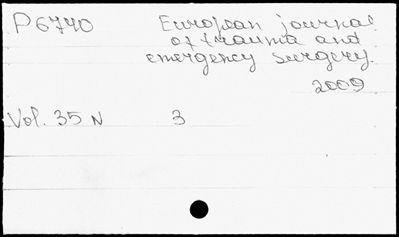 P6740 European journal
of trauma and
emergency surgery.
2009
Vol. 35 N 3